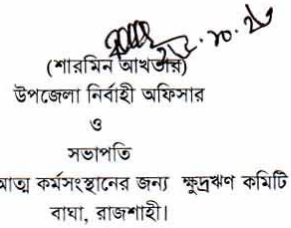 (শারমিন আখতার)
উপজেলা নির্বাহী অফিসার
ও
সভাপতি
আত্ম কর্মসংস্থানের জন্য ক্ষুদ্রঋণ কমিটি
বাঘা, রাজশাহী।